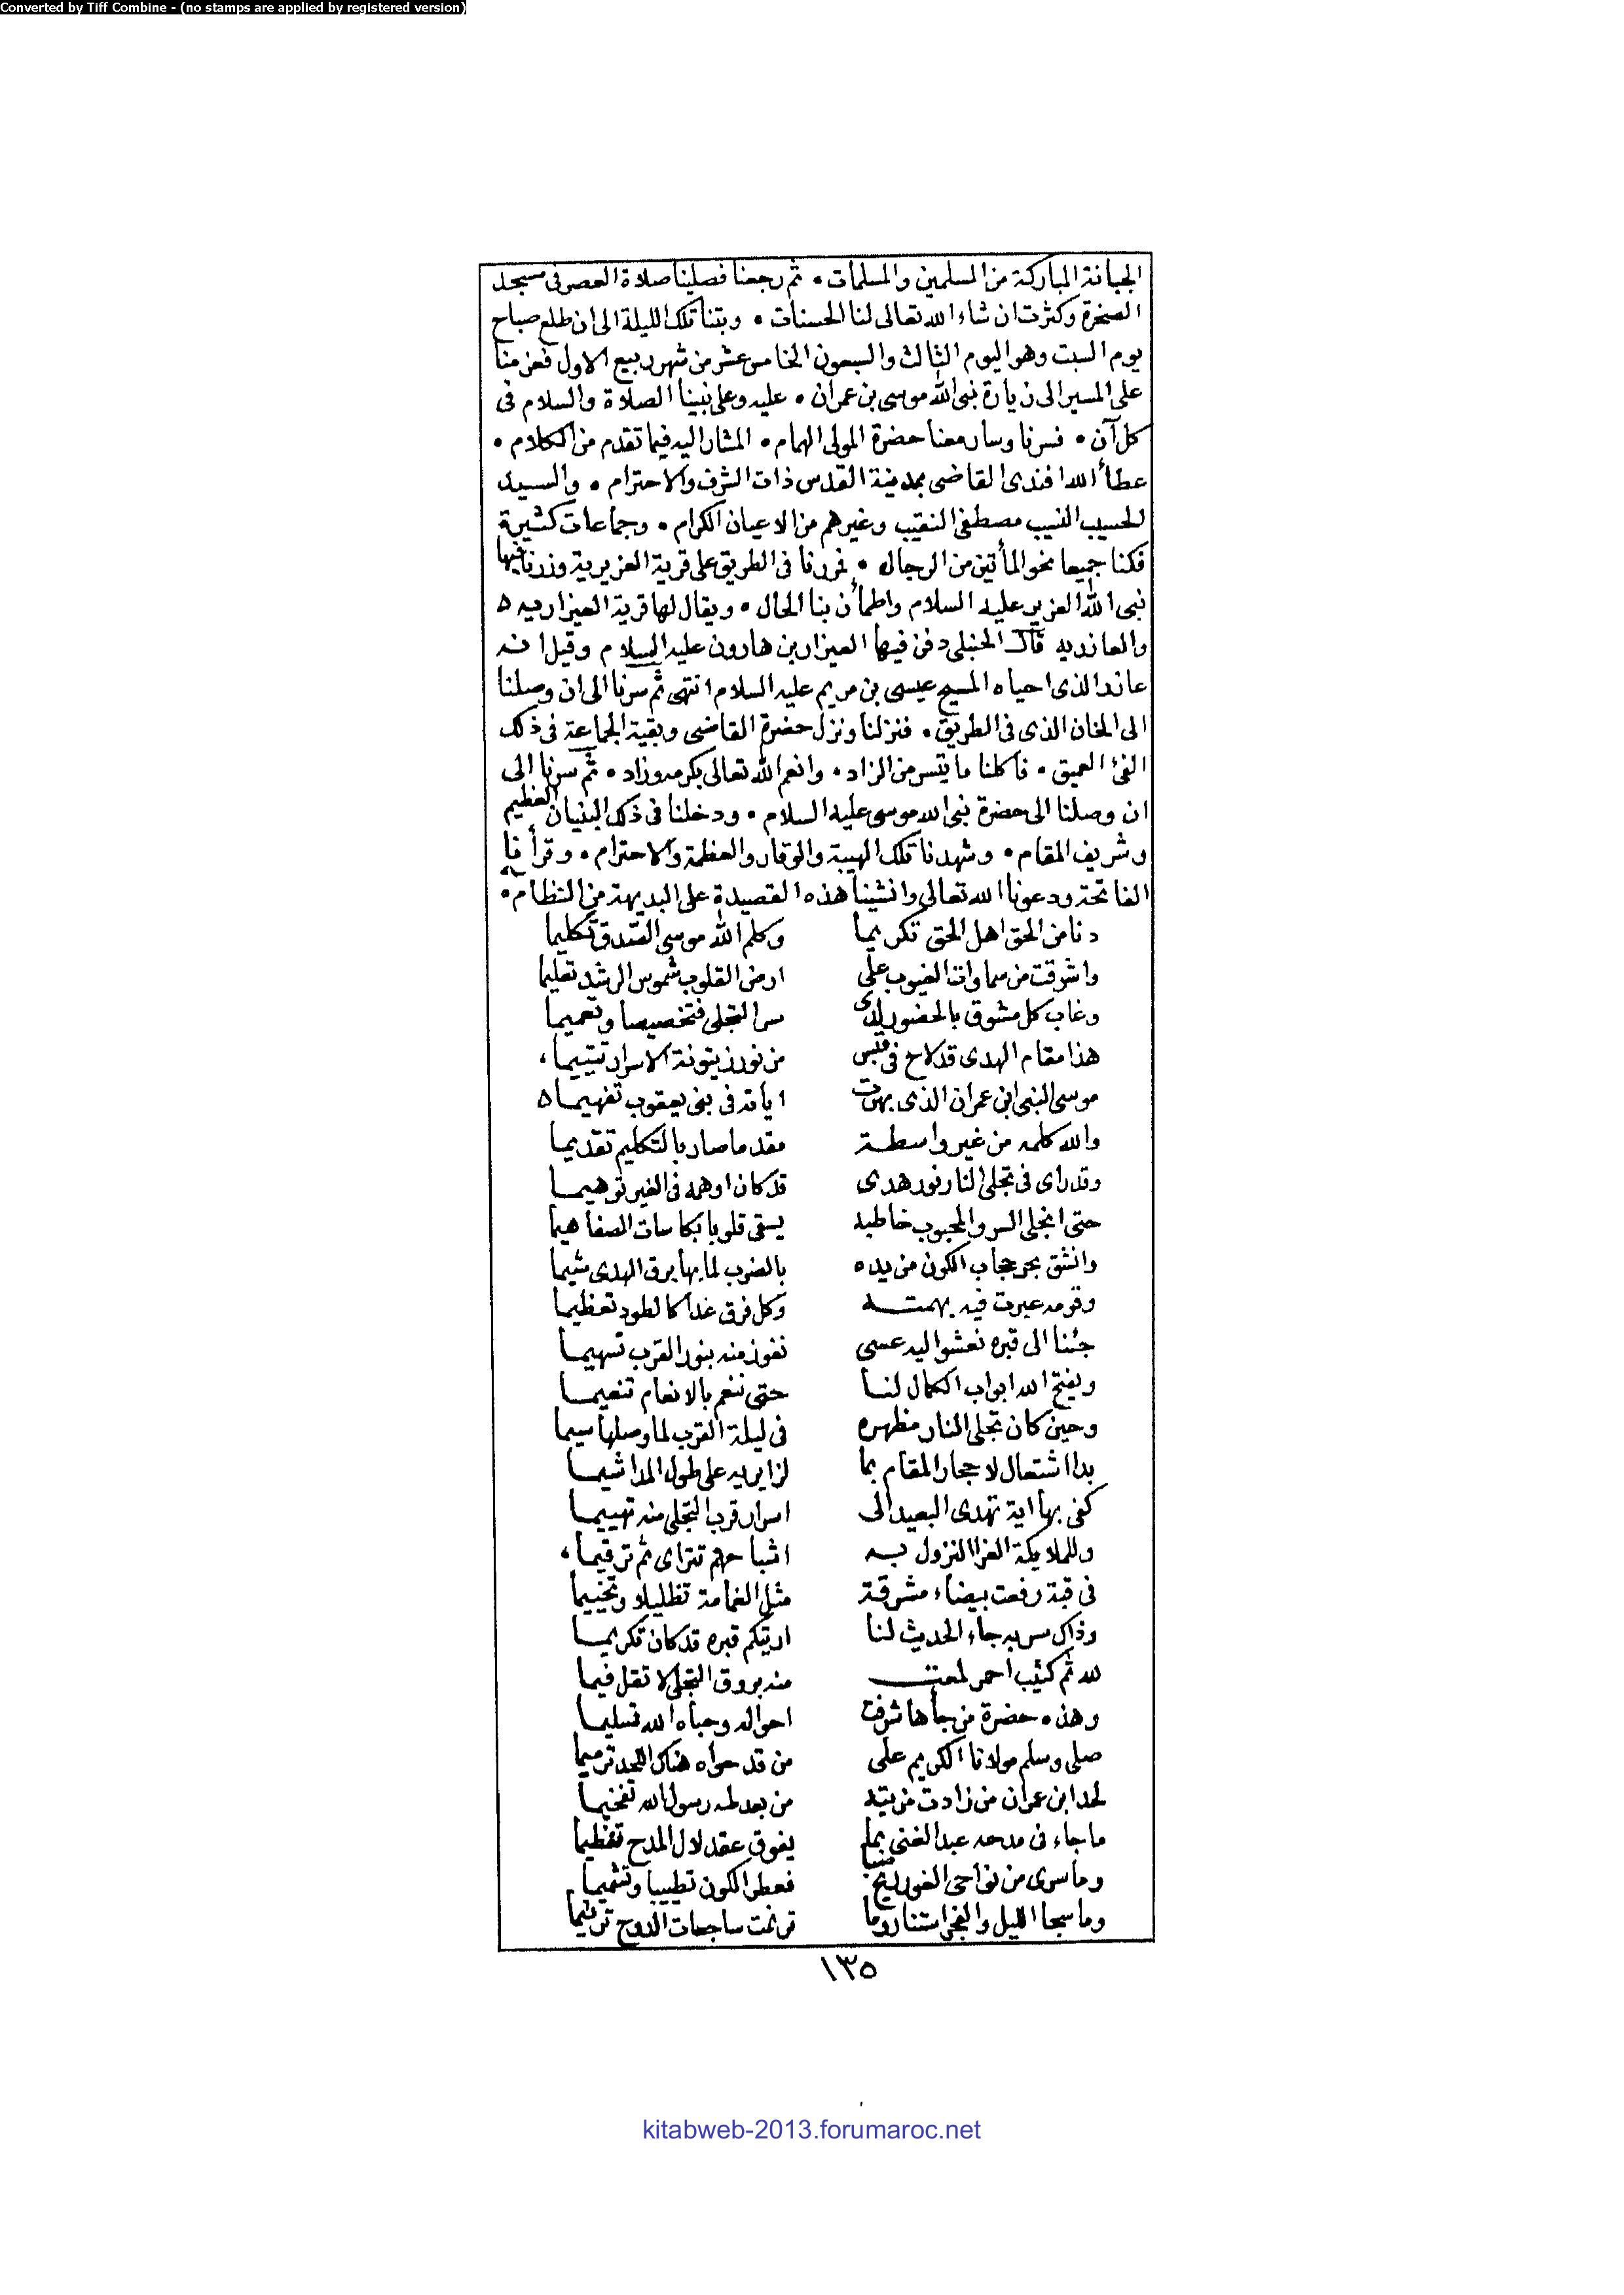 Converted by Tiff Combine - (no stamps are applied by registered version)
الجبانة المباركة من المسلمين والمسلمات • ثم رجعنا فصلينا صلاة العصر فى مسجد
الصخرة وكثرت ان شاء الله تعالى لنا الحسنات • وبتنا تلك الليلة الى ان طلع صباح
يوم السبت وهو اليوم الثالث والسبعون الخامس عشر من شهر ربيع الاول فعزمنا
على المسير الى زيارة نبى الله موسى بن عمران • عليه وعلى نبينا الصلاة والسلام فى
كل آن • فسرنا وسار معنا حضرة المولى الهمام • المشار اليه فيما تقدم من الكلام •
عطأ الله افندى القاضى بمدينة القدس ذات الشرف والاحترام • والسيد
الحسيب النسيب مصطفى النقيب وغيرهم من الاعيان الكرام • وجماعات كثيرة
فكنا جميعا نحو المأتين من الرجال • فمررنا فى الطريق على قرية العزيرية وزرنا فيها
نبى الله العزير عليه السلام واطمأن بنا الحال • ويقال لها قرية العيزاريه ه
والعازريه قال الحنبلى دفن فيها العيزار بن هارون عليه السلام وقيل انه
عازر الذى احياه المسيح عيسى بن مريم عليه السلام انتهى ثم سرنا الى ان وصلنا
الى الخان الذى فى الطريق • فنزلنا ونزل حضرة القاضى وبقية الجماعة فى ذلك
الفئ العميق • فاكلنا ما يتسر من الزاد • وانعم الله تعالى بكرمه وزاد • ثم سرنا الى
ان وصلنا الى حضرة نبى الله موسى عليه السلام • ودخلنا فى ذلك البنيان العظيم
وشريف المقام • وشهدنا تلك الهيبة والوقار والعظمة والاحترام • وقرأنا
الفاتحة ودعونا الله تعالى وانشينا هذه القصيدة على البديهة من النظام •
دنا من الحق اهل الحق تكريما وكلم الله موسى الصدق تكليما
واشرقت من سماوات الغيوب على ارض القلوب شموس الرشد تعليما
وغاب كل مشوق بالحضور لدى سر التجلى فتخصيصا وتعميما
هذا مقام الهدى قد لاح فى قبس من نور زيتونة الاسرار تتييما ،
موسى النبى ابن عمران الذى بهرت اياته فى بنى يعقوب تفهيما ه
والله كلمه من غير واسطة مقدما صار بالتكليم تقديما
وقد راى فى تجلى النار نور هدى قد كان اوهمه فى الغير توهيما
حتى انجلى السر والمحبوب خاطبه يسقى قلوبا بكاسات الصفا هيما
وانشق بحر حجاب الكون من يده بالضرب لما بها برق الهدى شيما
وقومه عبرت فيه بهمته وكل فرق غدا كالطود تعظيما
جئنا الى قبره نعشو اليه عسى نفوز منه بنور القرب تسهيما
ويفتح الله ابواب الكمال لنا حتى ننعم بالانعام تنعيما
وحين كان تجلى النار مظهره فى ليلة القرب لما وصلها سيما
بدا اشتعال لاحجار المقام بما لزايريه على طول المدا شيما
كفى بها اية تهدى البعيد الى اسرار قرب التجلى منه تهييما
وللملايكة الغرا النزول به اشباحهم تتراى ثم ترقيما ،
فى قبة رفعت بيضاء مشرقة مثل الغمامة تظليلا وتخييما
وذاك سر به جاء الحديث لنا اريتكم قبره قد كان تكريما
لله ثم كثيب احمر لمعت منه بروق التجلى لا تقل فيما
وهذه حضرة من جأها شرفت احواله وحباه الله تسليما
صلى وسلم مولانا الكريم على من قد حواه هناك اللحد ترميما
لحد ابن عمران من زادت مزيته من بعد طه رسول الله تفخيما
ما جاء فى مدحه عبد الغنى بما يفوق عقد لال المدح تنظيما
وما سرى من نواحى الغور ريح صبا فعطر الكون تطييبا وتشميما
وما سجا الليل والفجر استنار وما ترنمت ساجعات الدوح ترنيما
١٣٥
kitabweb-2013.forumaroc.net